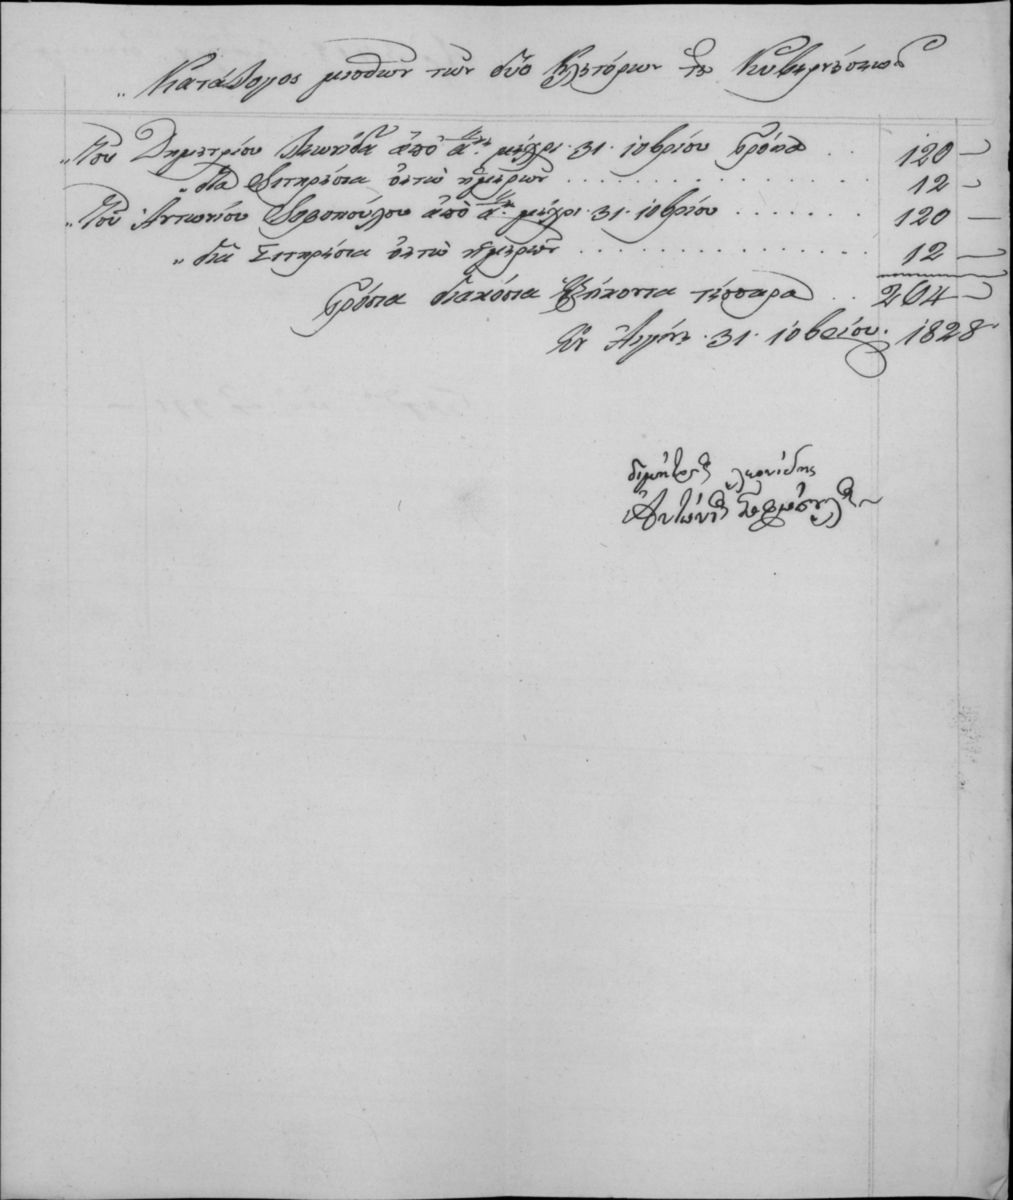 „ Κατάλογος μισθῶν τῶν δύο Κλητόρων τῆς Κυβερνήσεως
„ Τοῦ Δημητρίου Λεωνίδα ἀπὸ α. μέχρι 31 10βρίου Γρόσια . . 120 —
„ διὰ Σιτηρέσια ὀκτὼ ἡμερῶν . . . . . . . . . . . . 12 —
„ Τοῦ Ἀντωνίου ἀπὸ α. μέχρι 31 10βρίου . . . . . . . 120 —
„ διὰ Σιτηρέσια ὀκτὼ ἡμερῶν . . . . . . . . . . . . 12 —
Γρόσια διακόσια ἑξήκοντα τέσσαρα . . 264 —
Ἐν Αἰγίνῃ 31 10βρίου. 1828
διμήτρις λεονίδης
Ἀντώνις